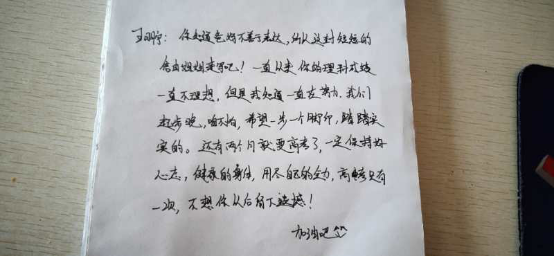 你知道爸妈不善于表达，所以这封短短的
信由姐姐来写吧！一直以来你的理科成绩
一直不理想，但是我知道你一直在努力，我们
起步晚，咱不怕，希望一步一个脚印，踏踏实
实的。还有两个月就要高考了，一定保持好
心态，健康的身体，用尽自己的全力，高考只有
一次，不想你以后留下遗憾！
加油吧